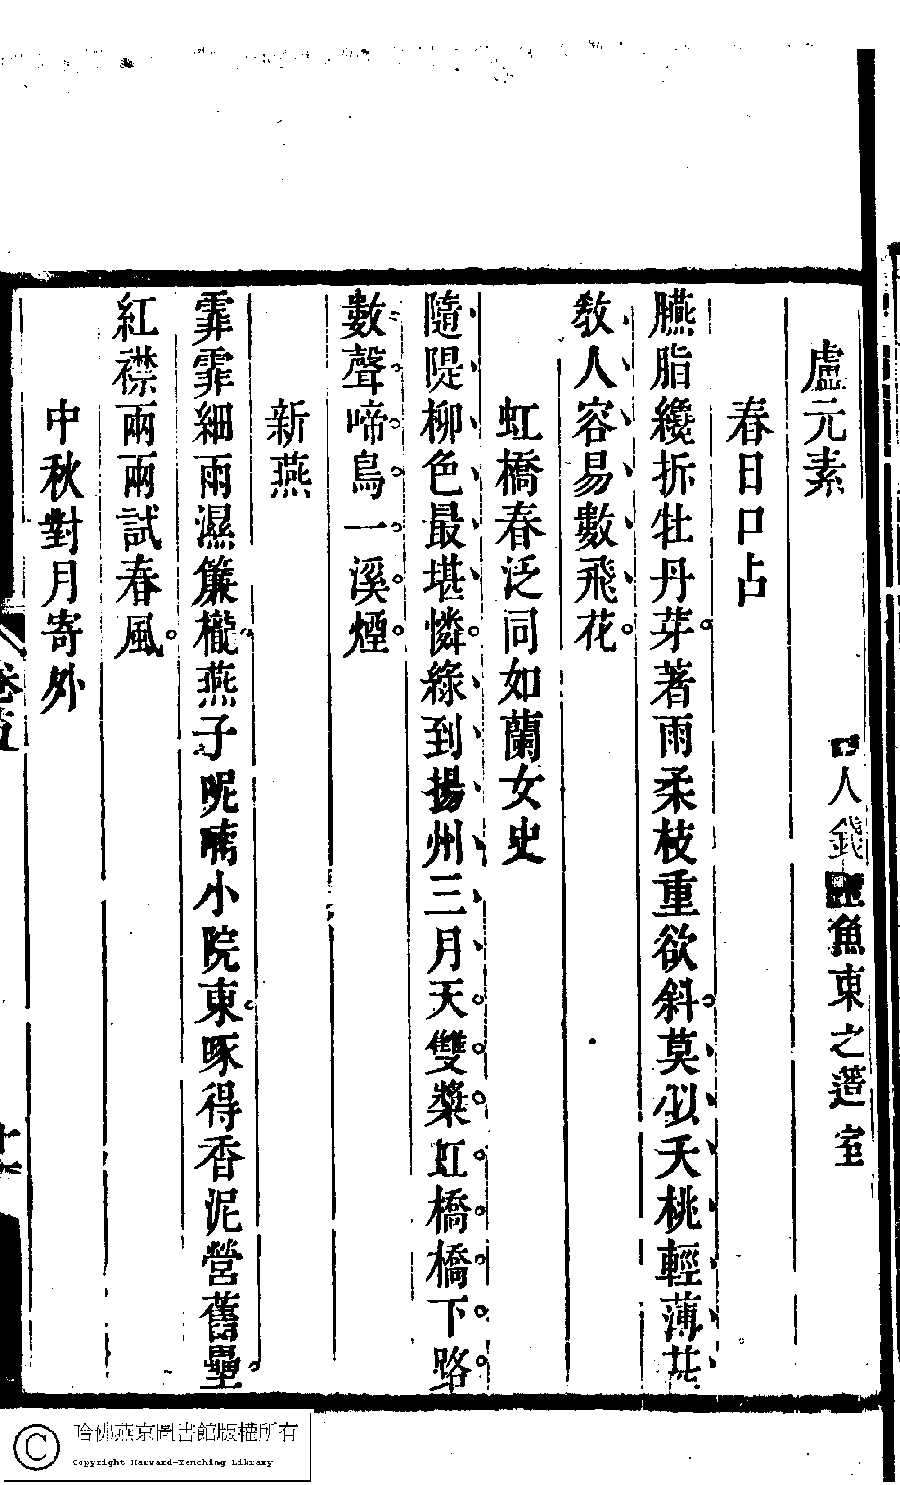 盧元素
人錢
魚東之簉室
春日口占
臙脂纔拆牡丹芽著雨柔枝重欲斜莫似夭桃輕薄甚
教人容易數飛花
虹橋春泛同如蘭女史
隨隄柳色最堪憐綠到揚州三月天雙槳虹橋橋下路
數聲啼鳥一溪煙
新燕
霏霏細雨濕簾櫳燕子呢喃小院東啄得香泥營舊壘
紅襟兩兩試春風
中秋對月寄外
卷五
哈佛燕京圖書館版權所有
Copyright Harvard-Yenching Library